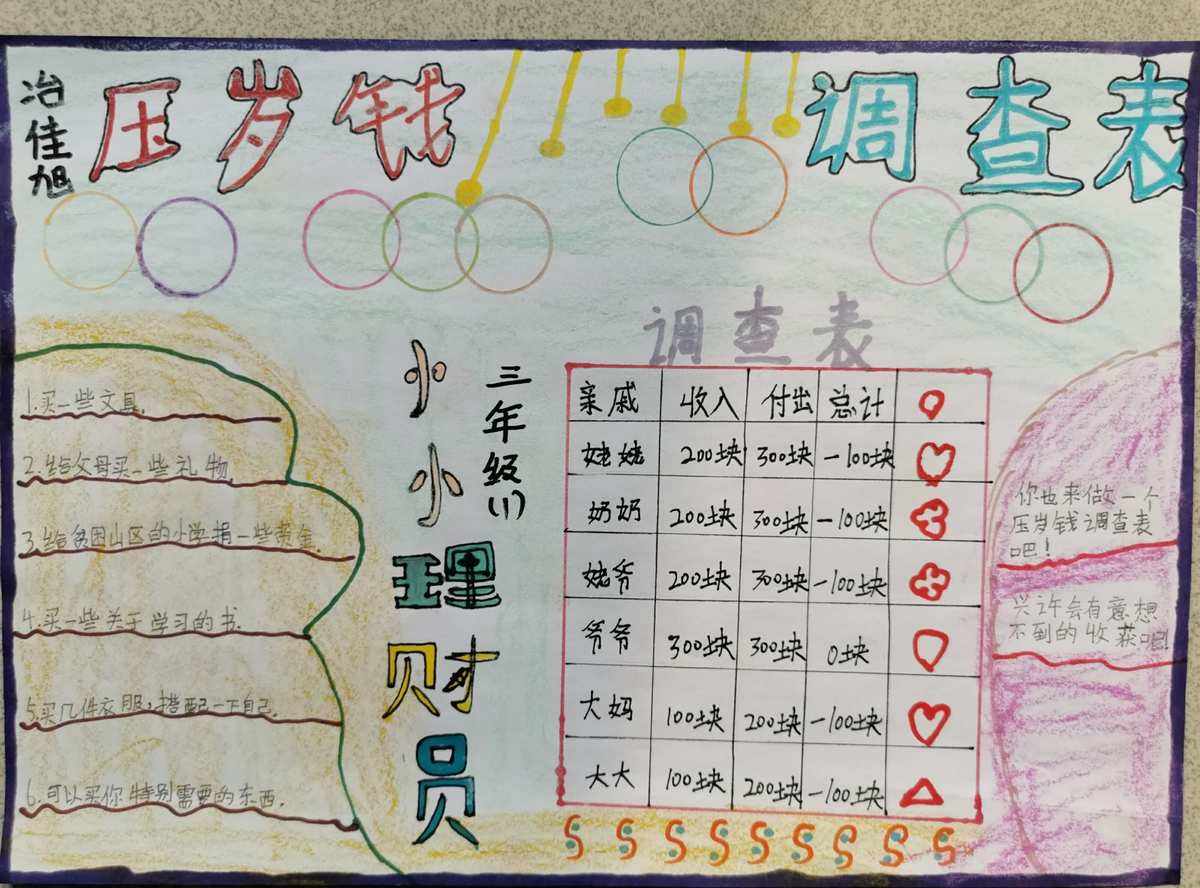 冶佳旭
压岁钱
调查表
1.买一些文具.
2.给父母买一些礼物.
3.给贫困山区的小学捐一些
4.买一些关于学习的书.
5.买几件衣服,搭配一下自己.
6.可以买你特别需要的东西.
小小理财员
三年级(1)
调查表
亲戚 收入 付出 总计
姥姥 200块 300块 -100块
奶奶 200块 300块 -100块
姥爷 200块 300块 -100块
爷爷 300块 300块 0块
大妈 100块 200块 -100块
大大 100块 200块 -100块
你也来做一个
压岁钱调查表
吧!
兴许会有意想
不到的收获呢!